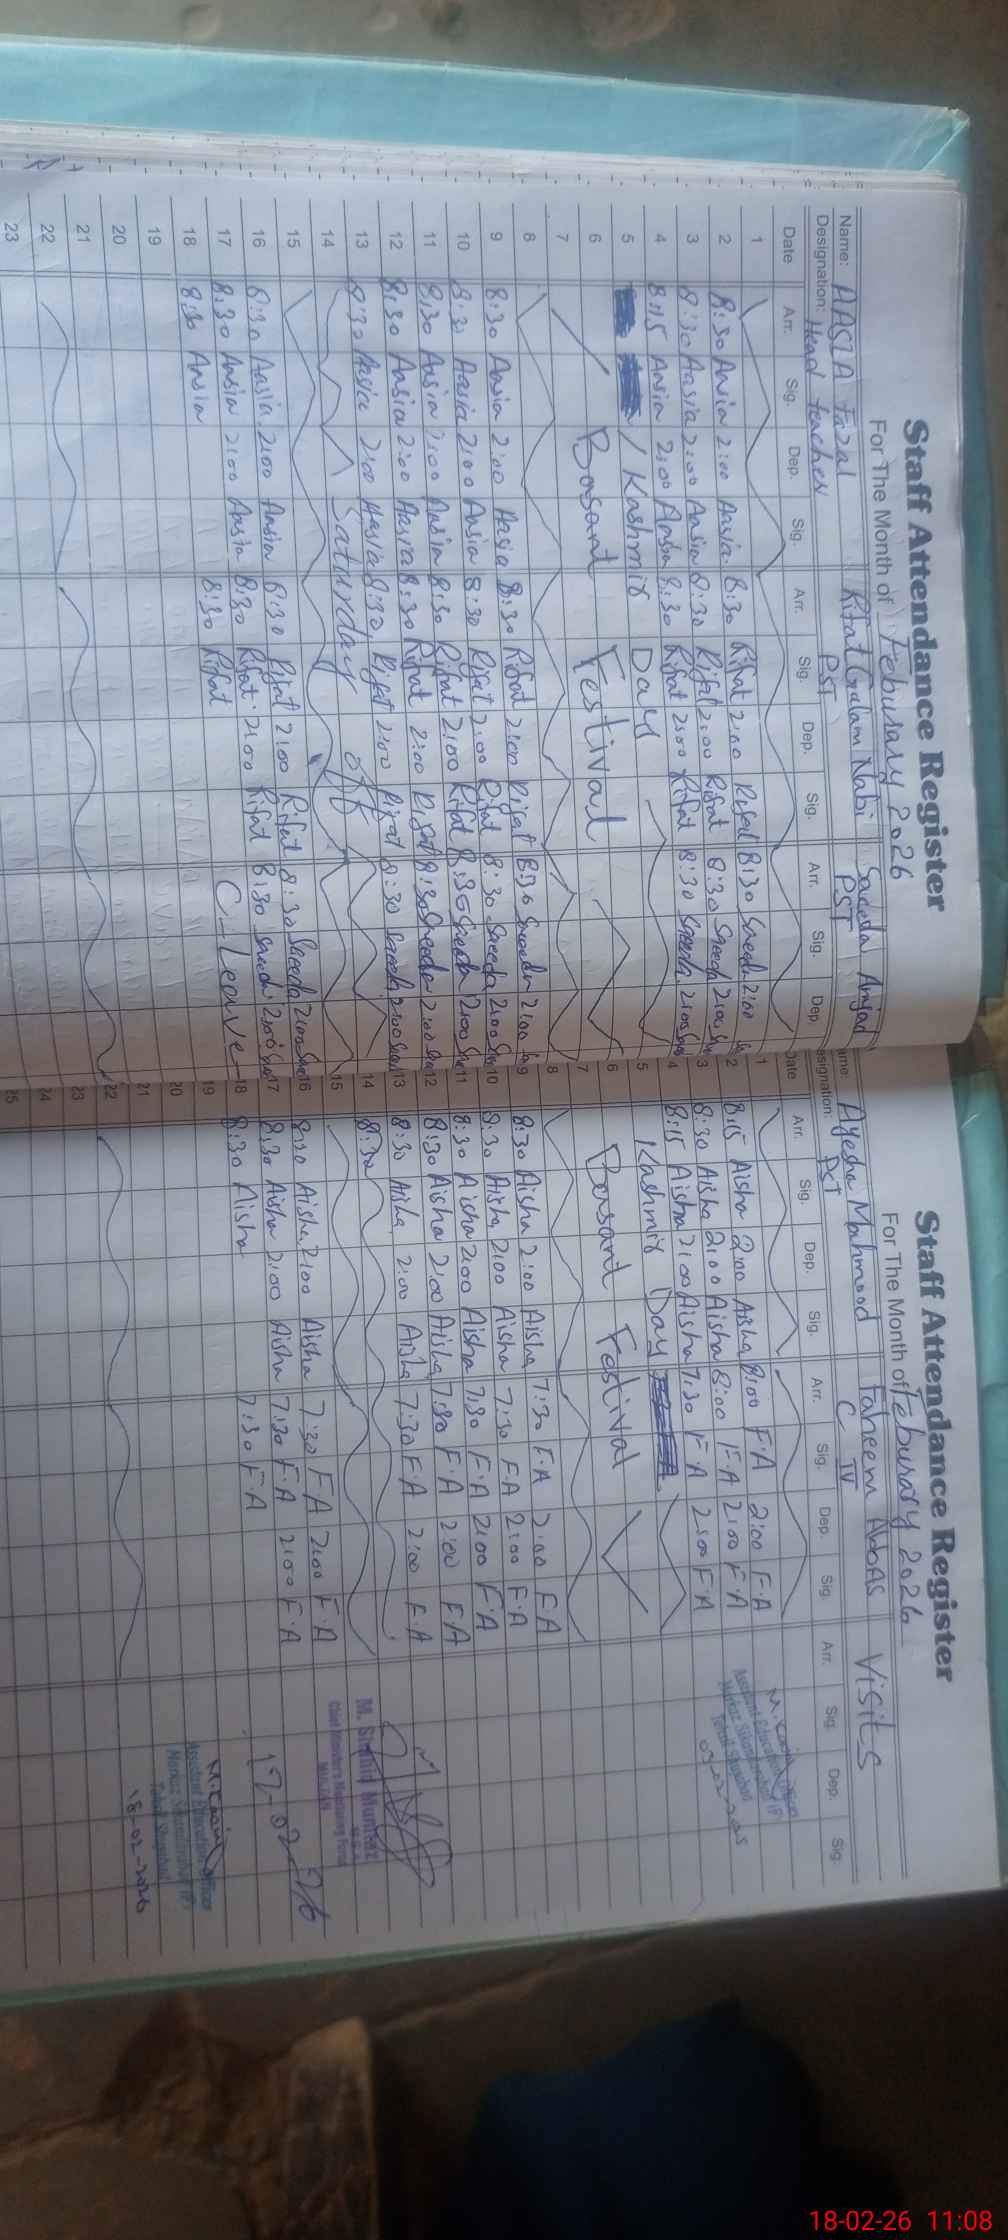 Staff Attendance Register
For The Month of Feburary 2026
Name: AASIA Fazal Rifat Gulam Nabi Saeeda Amjad
Designation: Head teacher PST PST
Date Arr. Sig. Dep. Sig. Arr. Sig. Dep. Sig. Arr. Sig. Dep.
1
2 8:30 Aasia 2:00 Aasia 8:30 Rifat 2:00 Rifat 8:30 Saeeda 2:00
3 8:30 Aasia 2:00 Aasia 8:30 Rifat 2:00 Rifat 8:30 Saeeda 2:00
4 8:15 Aasia 2:00 Aasia 8:30 Rifat 2:00 Rifat 8:30 Saeeda 2:00
5 Kashmir Day
6 Basant Festival
7
8
9 8:30 Aasia 2:00 Aasia 8:30 Rifat 2:00 Rifat 8:30 Saeeda 2:00
10 8:30 Aasia 2:00 Aasia 8:30 Rifat 2:00 Rifat 8:30 Saeeda 2:00
11 8:30 Aasia 2:00 Aasia 8:30 Rifat 2:00 Rifat 8:30 Saeeda 2:00
12 8:30 Aasia 2:00 Aasia 8:30 Rifat 2:00 Rifat 8:30 Saeeda 2:00
13 8:30 Aasia 2:00 Aasia 8:30 Rifat 2:00 Rifat 8:30 Saeeda 2:00
14 Saturday off
15
16 8:30 Aasia 2:00 Aasia 8:30 Rifat 2:00 Rifat 8:30 Saeeda 2:00
17 8:30 Aasia 2:00 Aasia 8:30 Rifat 2:00 Rifat 8:30 Saeeda 2:00
18 8:30 Aasia 8:30 Rifat C-Leave
19
20
21
22
23
Staff Attendance Register
For The Month of Feburary 2026
ame: Ayesha Mahmood Faheem Abbas Visits
esignation: PST C IV
Date Arr. Sig. Dep. Sig. Arr. Sig. Dep. Sig. Arr. Sig. Dep. Sig.
1
2 8:15 Aisha 2:00 Aisha 8:00 F.A 2:00 F.A
3 8:30 Aisha 2:00 Aisha 8:00 F.A 2:00 F.A
4 8:15 Aisha 2:00 Aisha 7:30 F.A 2:00 F.A
5 Kashmir Day
6 Basant Festival
7
8
9 8:30 Aisha 2:00 Aisha 7:30 F.A 2:00 F.A
10 8:30 Aisha 2:00 Aisha 7:30 F.A 2:00 F.A
11 8:30 Aisha 2:00 Aisha 7:30 F.A 2:00 F.A
12 8:30 Aisha 2:00 Aisha 7:30 F.A 2:00 F.A
13 8:30 Aisha 2:00 Aisha 7:30 F.A 2:00 F.A
14 8:30
15
16 8:30 Aisha 2:00 Aisha 7:30 F.A 2:00 F.A
17 8:30 Aisha 2:00 Aisha 7:30 F.A 2:00 F.A
18 8:30 Aisha 7:30 F.A
19
20
21
22
23
24
25
Assistant Education Officer
M. Shahid Mumtaz
17-02-26
Assistant Education Officer
18-02-2026
18-02-26 11:08